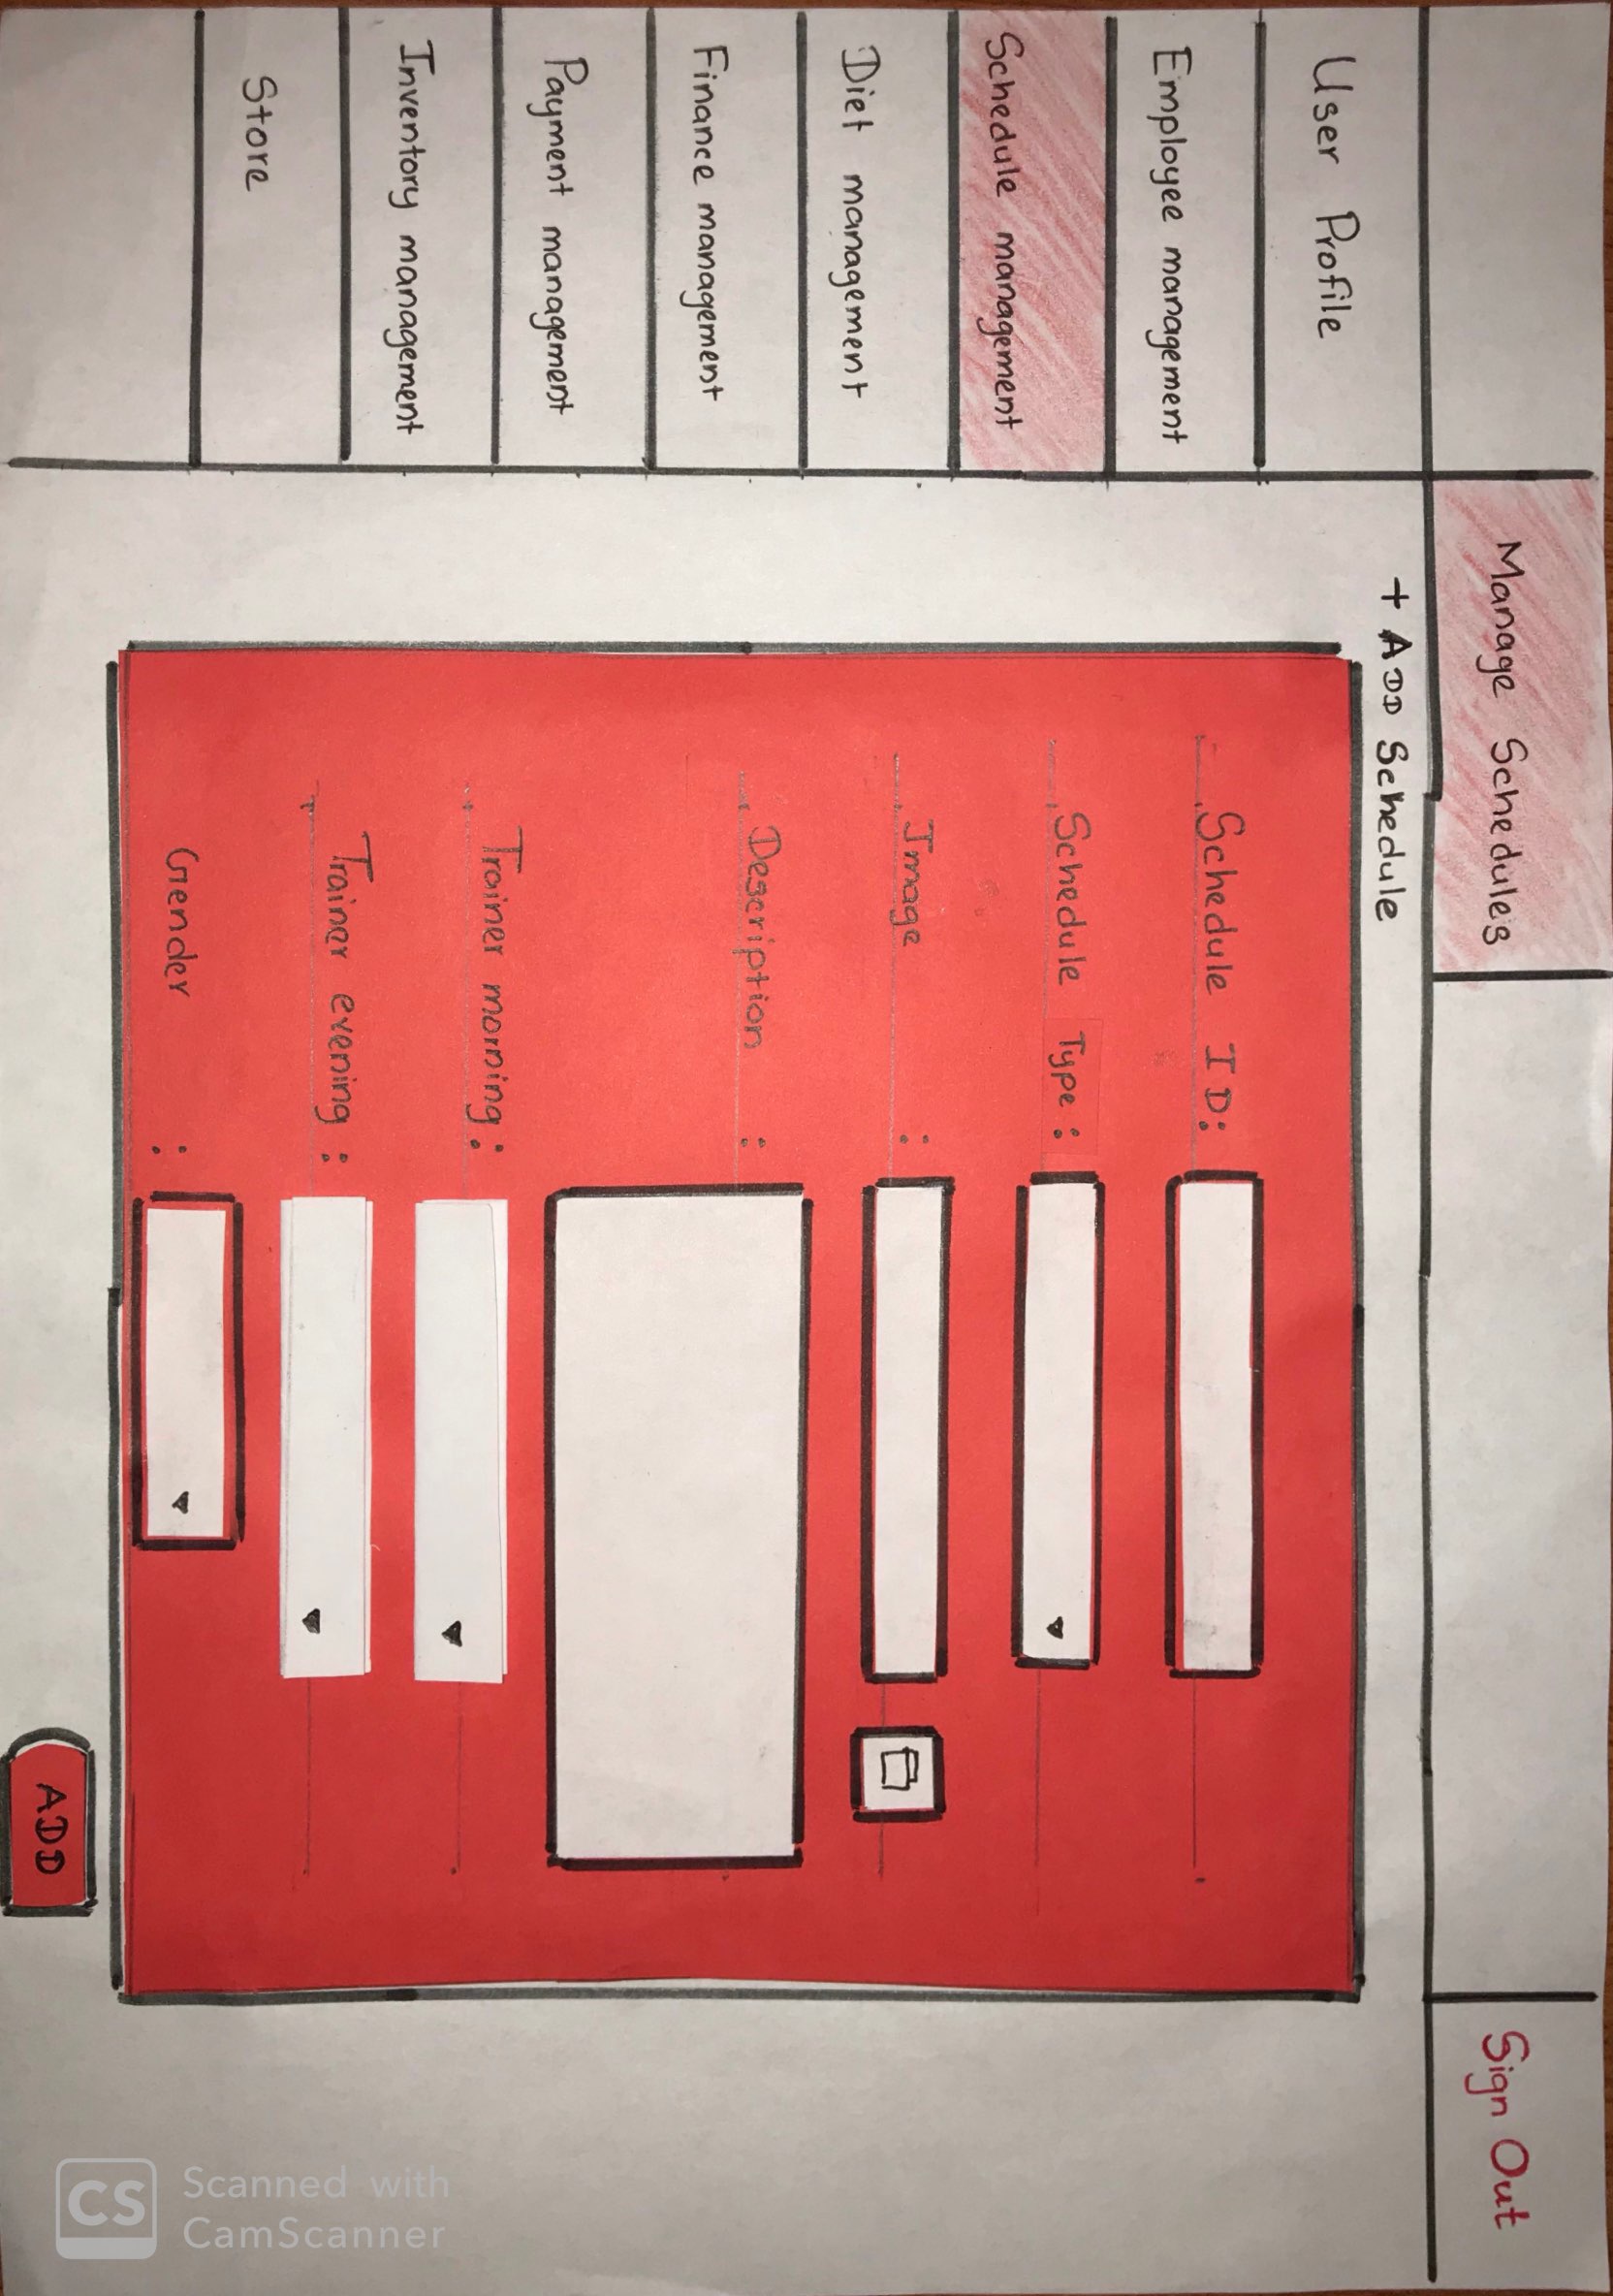 Manage Schedules
Sign Out
User Profile
Employee management
Schedule management
Diet management
Finance management
Payment management
Inventory management
Store
+ ADD Schedule
Schedule ID:
Schedule Type :
Image :
Description :
Trainer morning :
Trainer evening :
Gender :
ADD
CS
Scanned with
CamScanner